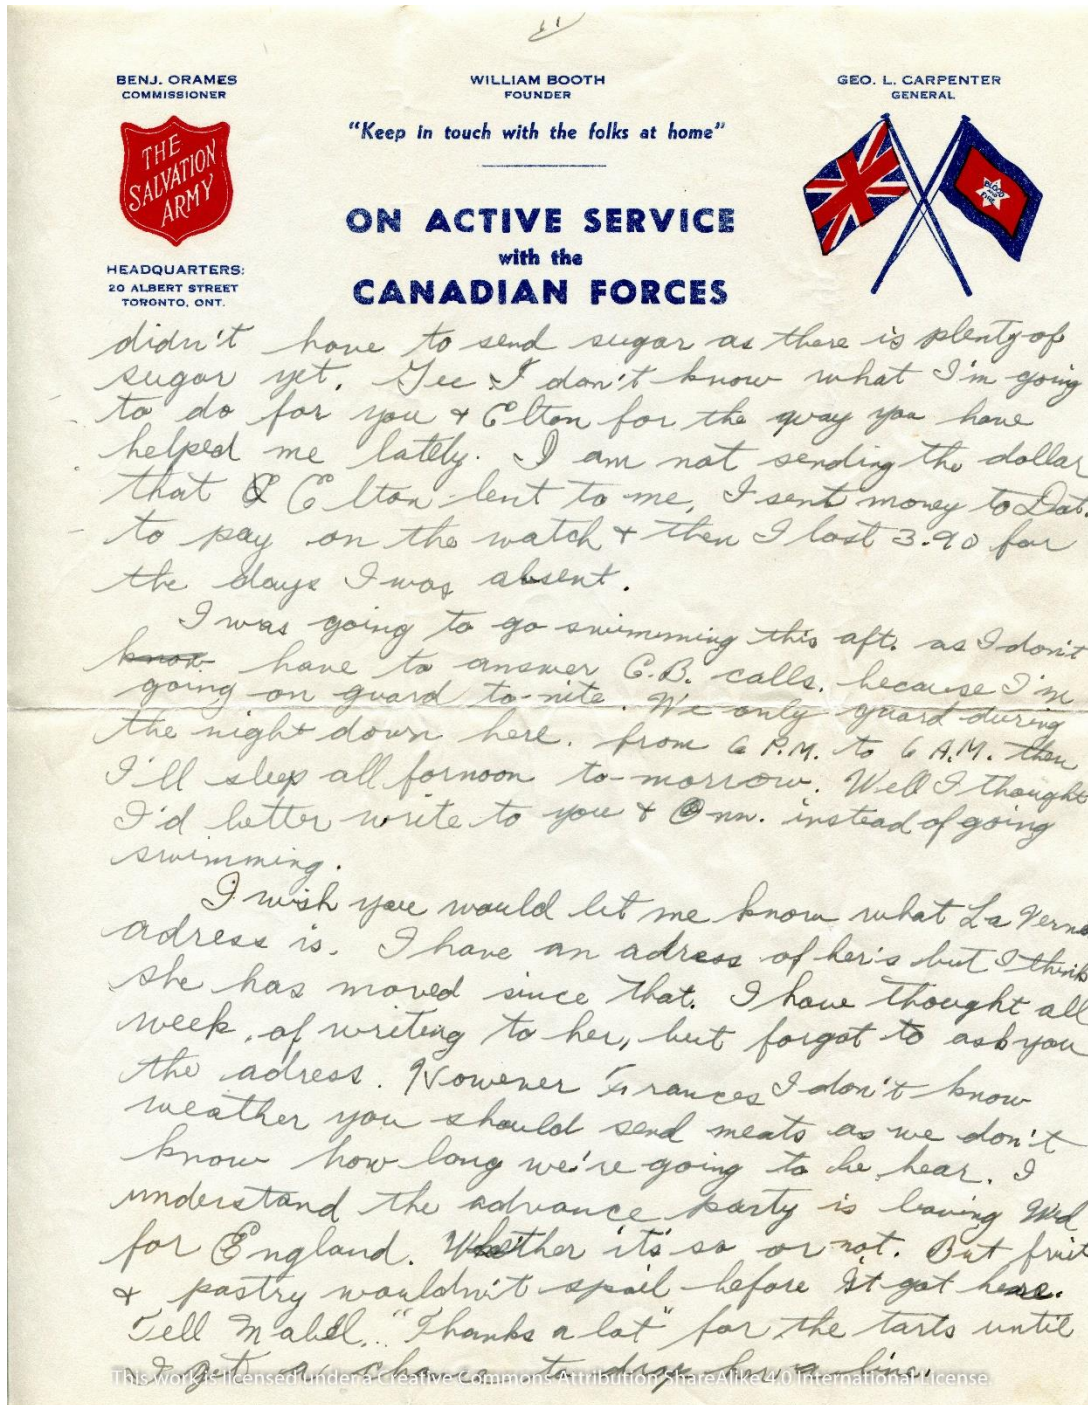 11
BENJ. ORAMES
COMMISSIONER
WILLIAM BOOTH
FOUNDER
GEO. L. CARPENTER
GENERAL
"Keep in touch with the folks at home"
THE
SALVATION
ARMY
BLOOD
AND
FIRE
ON ACTIVE SERVICE
with the
CANADIAN FORCES
HEADQUARTERS:
20 ALBERT STREET
TORONTO, ONT.
didn't have to send sugar as there is plenty of
sugar yet. Gee I don't know what I'm going
to do for you & Elton for the way you have
helped me lately. I am not sending the dollar
that Elton lent to me, I sent money to Dot.
to pay on the watch & then I lost 3.90 for
the days I was absent.
I was going to go swimming this aft. as I don't
know have to answer C.B. calls, because I'm
going on guard to-nite. We only guard during
the night down here. from 6 P.M. to 6 A.M. then
I'll sleep all fornoon to-morrow. Well I thought
I'd better write to you & Onn. instead of going
swimming.
I wish you would let me know what La Verns
adress is. I have an adress of her's but I think
she has moved since that. I have thought all
week, of writing to her, but forgot to ask you
the adress. However Frances I don't know
weather you should send meats as we don't
know how long we're going to be hear. I
understand the advance party is leaving Wed
for England. Whether it's so or not. But fruit
& pastry wouldn't spoil before it got here.
Tell Mabel. "Thanks a lot" for the tarts until
I get a chance to drop her a line.
This work is licensed under a Creative Commons Attribution ShareAlike 4.0 International License.